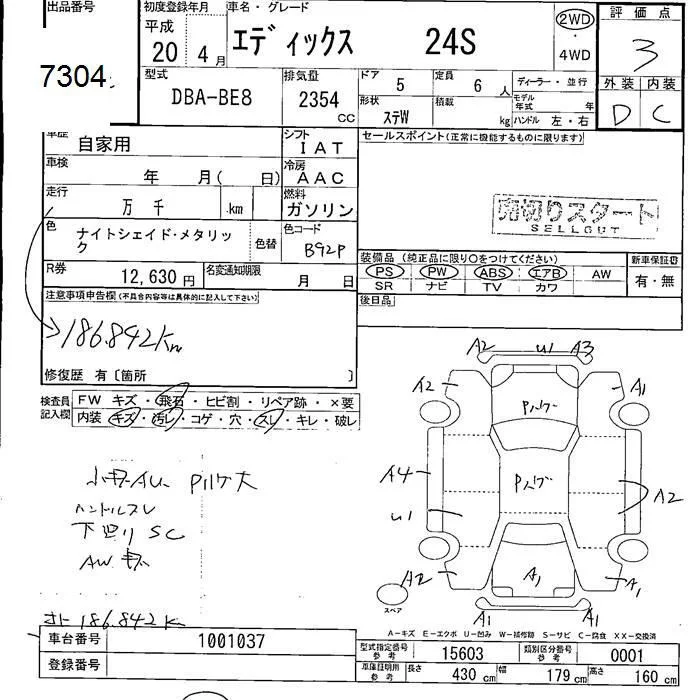 出品番号
7304
初度登録年月
平成
20 4月
車名・グレード
エディックス 24S
2WD
4WD
評価点
3
外装 内装
D C
型式
DBA-BE8
排気量
2354
CC
ドア 5
定員 6人
ディーラー・並行
形状 ステW
積載 kg
モデル年式 年
ハンドル 左・右
車歴
自家用
シフト
IAT
車検
年 月( 日)
冷房
AAC
走行
万 千 .km
燃料
ガソリン
色
ナイトシェイド・メタリック
色替
色コード
B92P
R券
12,630 円
名変通知期限
月 日
セールスポイント(正常に機能するものに限ります)
売切りスタート
SELLOUT
装備品(純正品に限り○をつけてください)
PS PW ABS エアB AW
SR ナビ TV カワ
新車保証書
有・無
後日品
注意事項申告欄(不具合内容等は具体的に記入して下さい)
186.842km
修復歴 有〔箇所 〕
検査員記入欄
FW キズ・飛石・ヒビ割・リペア跡・×要
内装・キズ・汚レ・コゲ・穴・スレ・キレ・破レ
ハンドルスレ
下廻りSC
186.842k
A2 U1 A3
A2 A1
A4 A2
U1
A2 A1 A1
A1 A1
スペア
A-キズ E-エクボ U-凹み W-補修跡 S-サビ C-腐食 XX-交換済
車台番号
1001037
登録番号
型式指定番号
参考
15603
類別区分番号
参考
0001
車庫証明用
参考
長さ 430 cm
幅 179 cm
高さ 160 cm